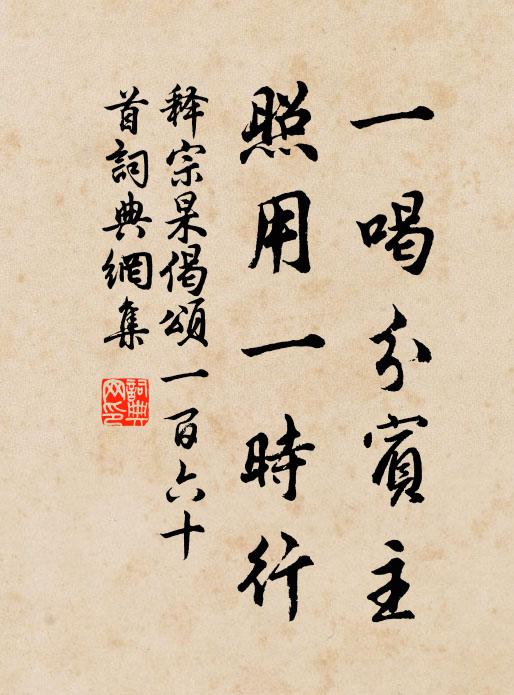 一喝分賓主
照用一時行
释宗杲偈頌一百六十
首詞典網集
詞典
网印